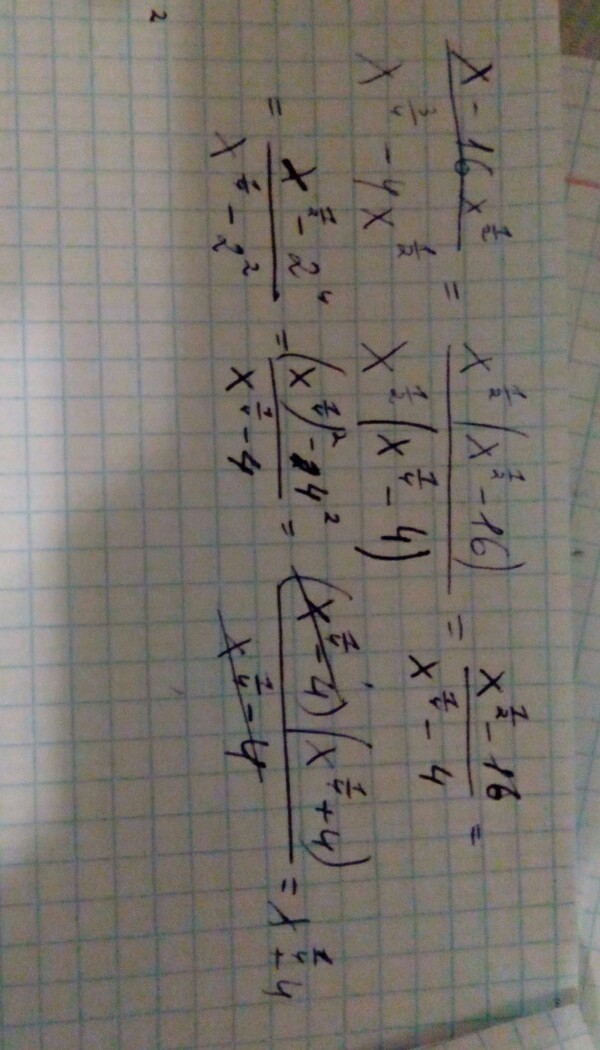 (x - 16x^(1/2))/(x^(3/4) - 4x^(1/2)) = (x^(1/2)(x^(1/2) - 16))/(x^(1/2)(x^(1/4) - 4)) = (x^(1/2) - 16)/(x^(1/4) - 4) =
= (x^(1/2) - 2^4)/(x^(1/4) - 2^2) = ((x^(1/4))^2 - 4^2)/(x^(1/4) - 4) = ((x^(1/4) - 4)(x^(1/4) + 4))/(x^(1/4) - 4) = x^(1/4) + 4
2